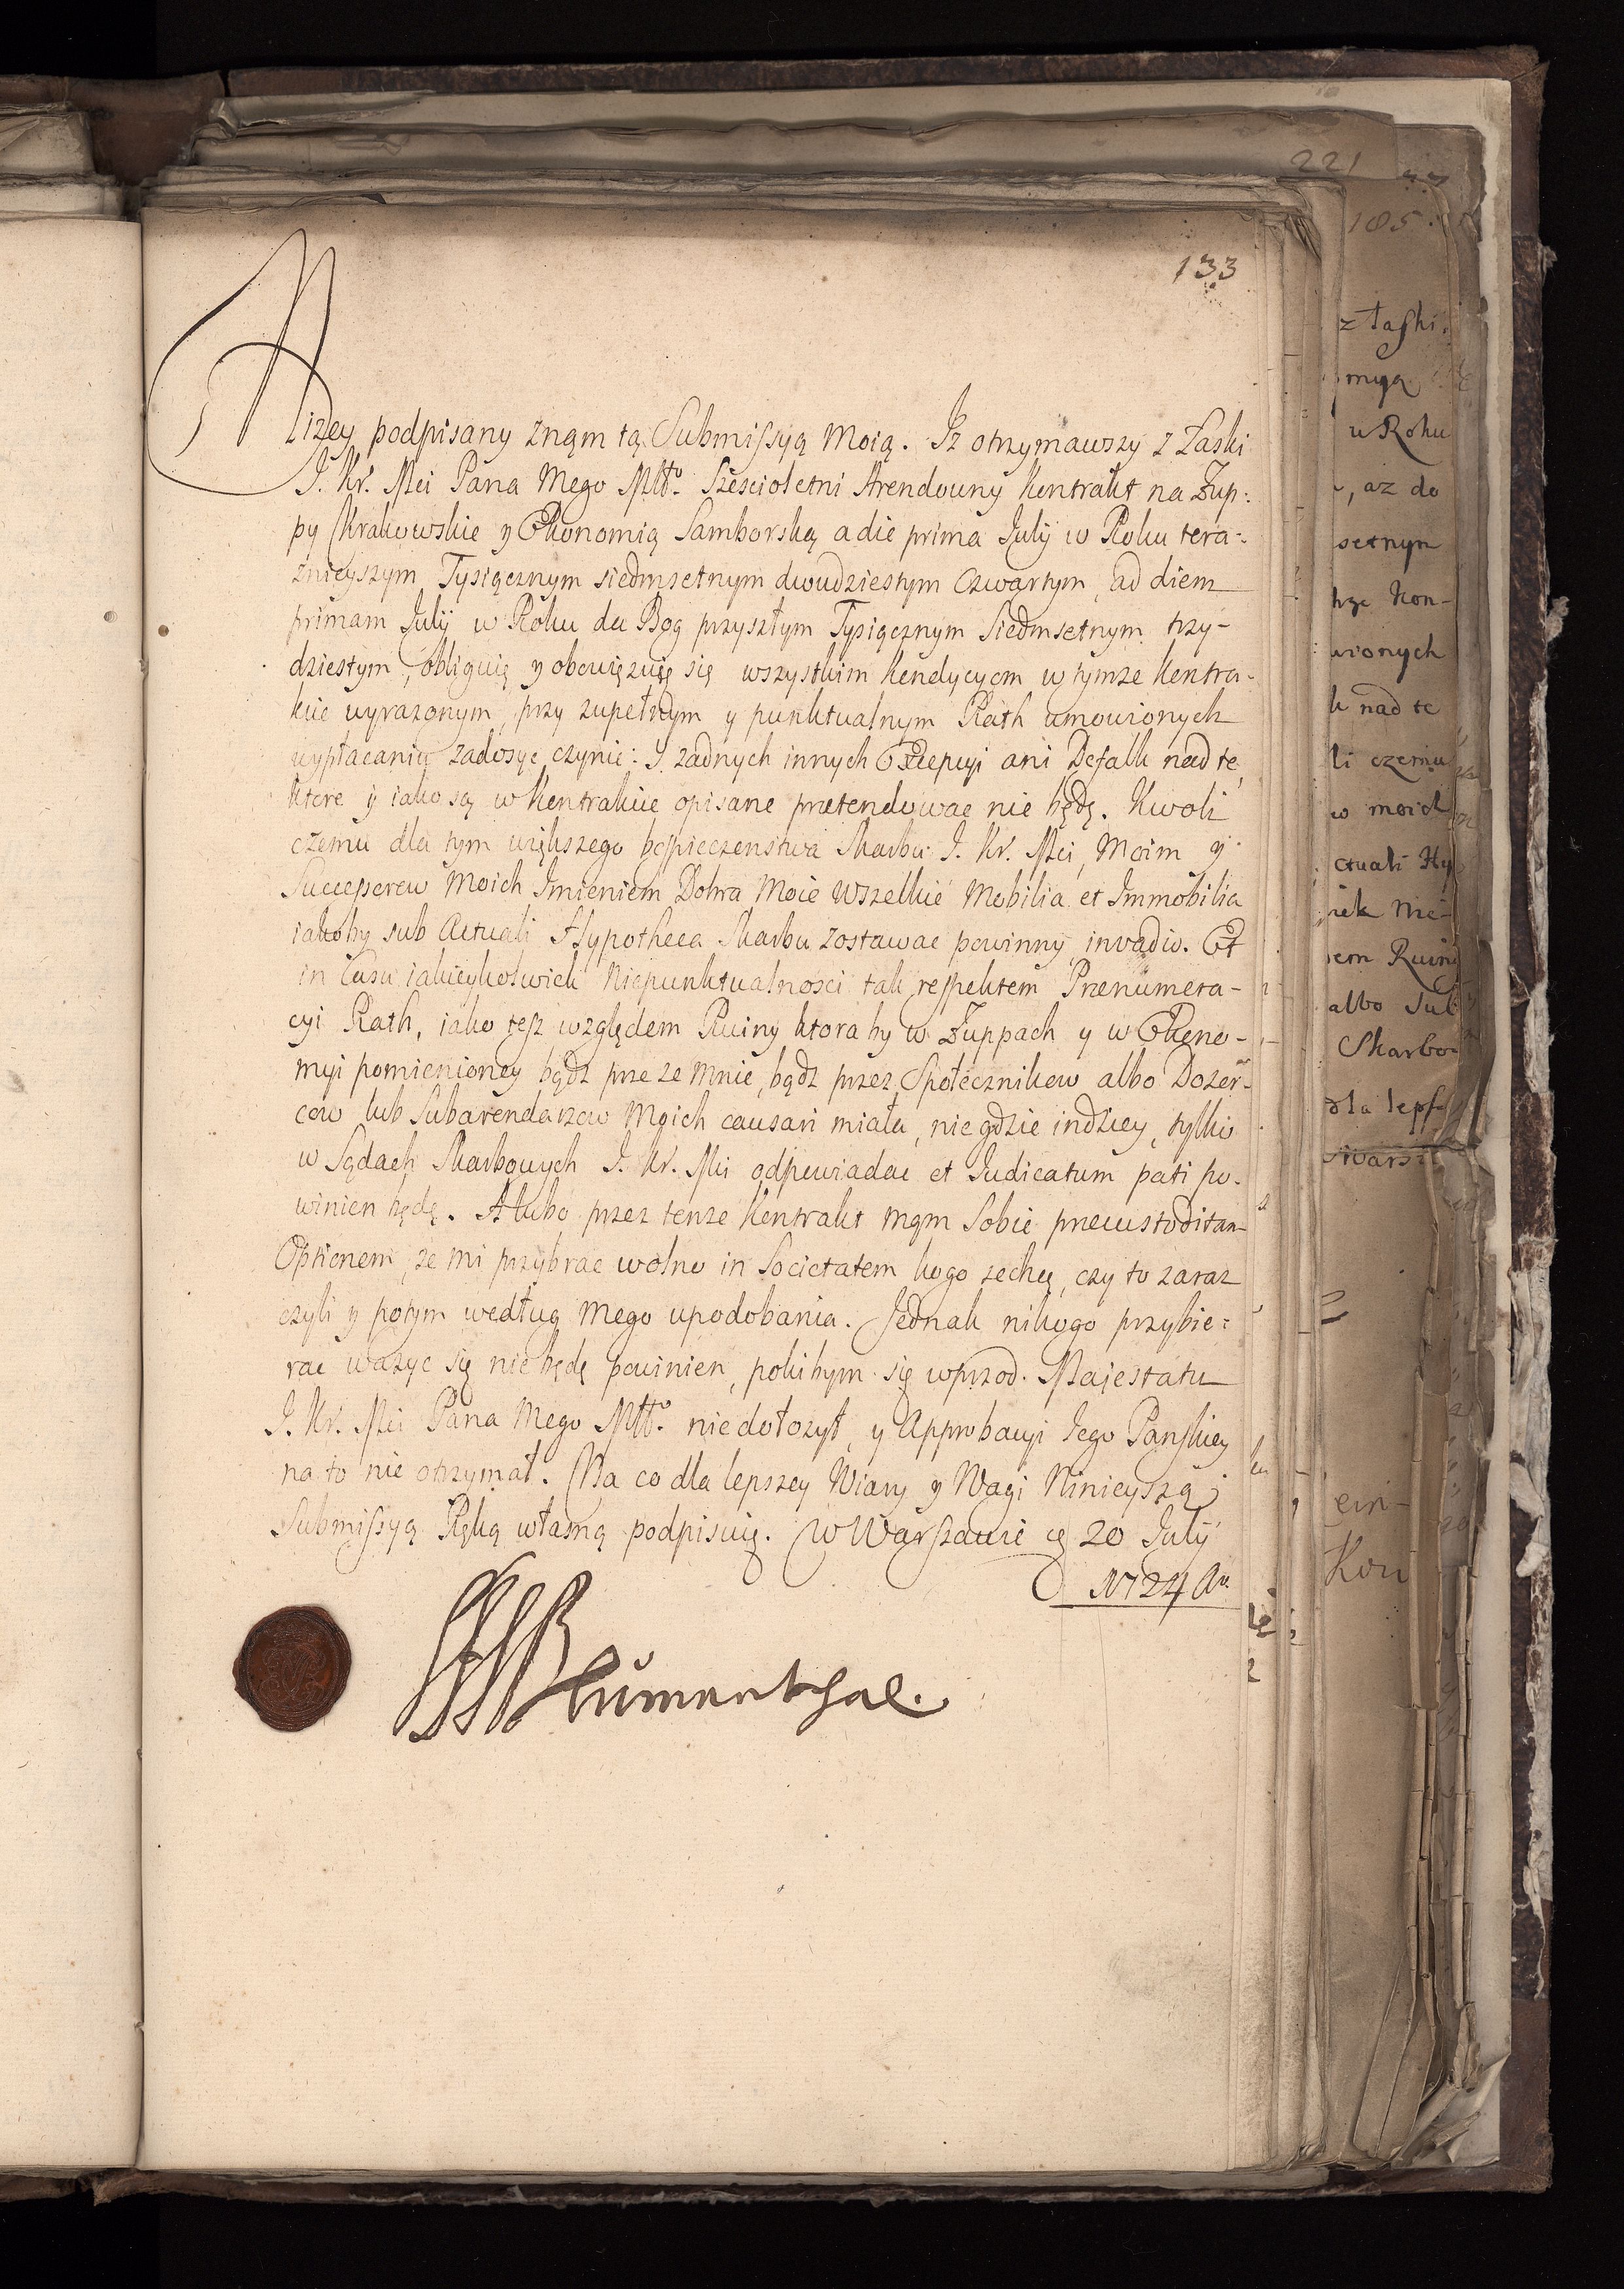 133
Nizey podpisany znąm tą Submissyą Moią. Iz otrzymawszy z Łaski
J. Kr. Mci Pana Mego Młto. Szescioletni Arendowny Kontrakt na Żup:
py Krakowskie y Ekonomią Samborską a die prima Julÿ w Roku tera:
znieyszym Tysiącznym siedmsetnym dwudziestym czwartym, ad diem
primam Julÿ w Roku da Bog przyszłym Tysiącznym Siedmsetnym trzy-
dziestym, obliguię y obowięzuię się wszystkim Kondycyom w tymze Kontra-
kcie wyrazonym, przy zupełnym y punktualnym Rath umowionych
wypłacaniu zadosyc czynic: Y zadnych innych Excepcyi ani Defalk nad te,
ktore y iako są w Kontrakcie opisane prætendowac nie będę. Kwoli
czemu dla tym większego bespieczenstwa Skarbu J. Kr. Mci, Moim y
Successorow Moich Imieniem Dobra Moie wszelkie Mobilia et Immobilia
iakoby sub Actuali Hypotheca Skarbu zostawac powinny, invadio. Et
in Casu iakieykolwiek Niepunktualnosci tak respektem Prenumera-
cyi Rath, iako tesz względem Ruiny ktora by w Żuppach y w Ekono-
myi pomienioney bądz prze ze Mnie, bądz przez Społecznikow albo Dozor-
cow lub Subarendarzow Moich causari miała, nie gdzie indziey, tylko
w Sądach Skarbowych J. Kr. Mci odpowiadac et Iudicatum pati po-
winien będę. A lubo przez tenze Kontrakt mąm Sobie precustoditam
Optionem, ze mi przybrac wolno in Societatem kogo zechcę, czy to zaraz
czyli y potym według Mego upodobania. Jednak nikogo przybie:
rac wazyc się nie będę powinien, pokibym się wprzod Majestatu
J. Kr. Mci Pana Mego Młto. niedołozył, y Approbacyi Iego Panskiey
na to nie otrzymał. Na co dla lepszey Wiary y Wagi Ninieyszą
Submissyą Ręką własną podpisuię. W Warszawie 20 Julÿ
1724 Ao.
Blumenthal.
221
185
z łaski
u Roku
, az do
setnym
Kon-
wionych
k nad te
li czemu
w moich
ctuali Hy
Ruiny
albo
Skarbo
dla lepsz